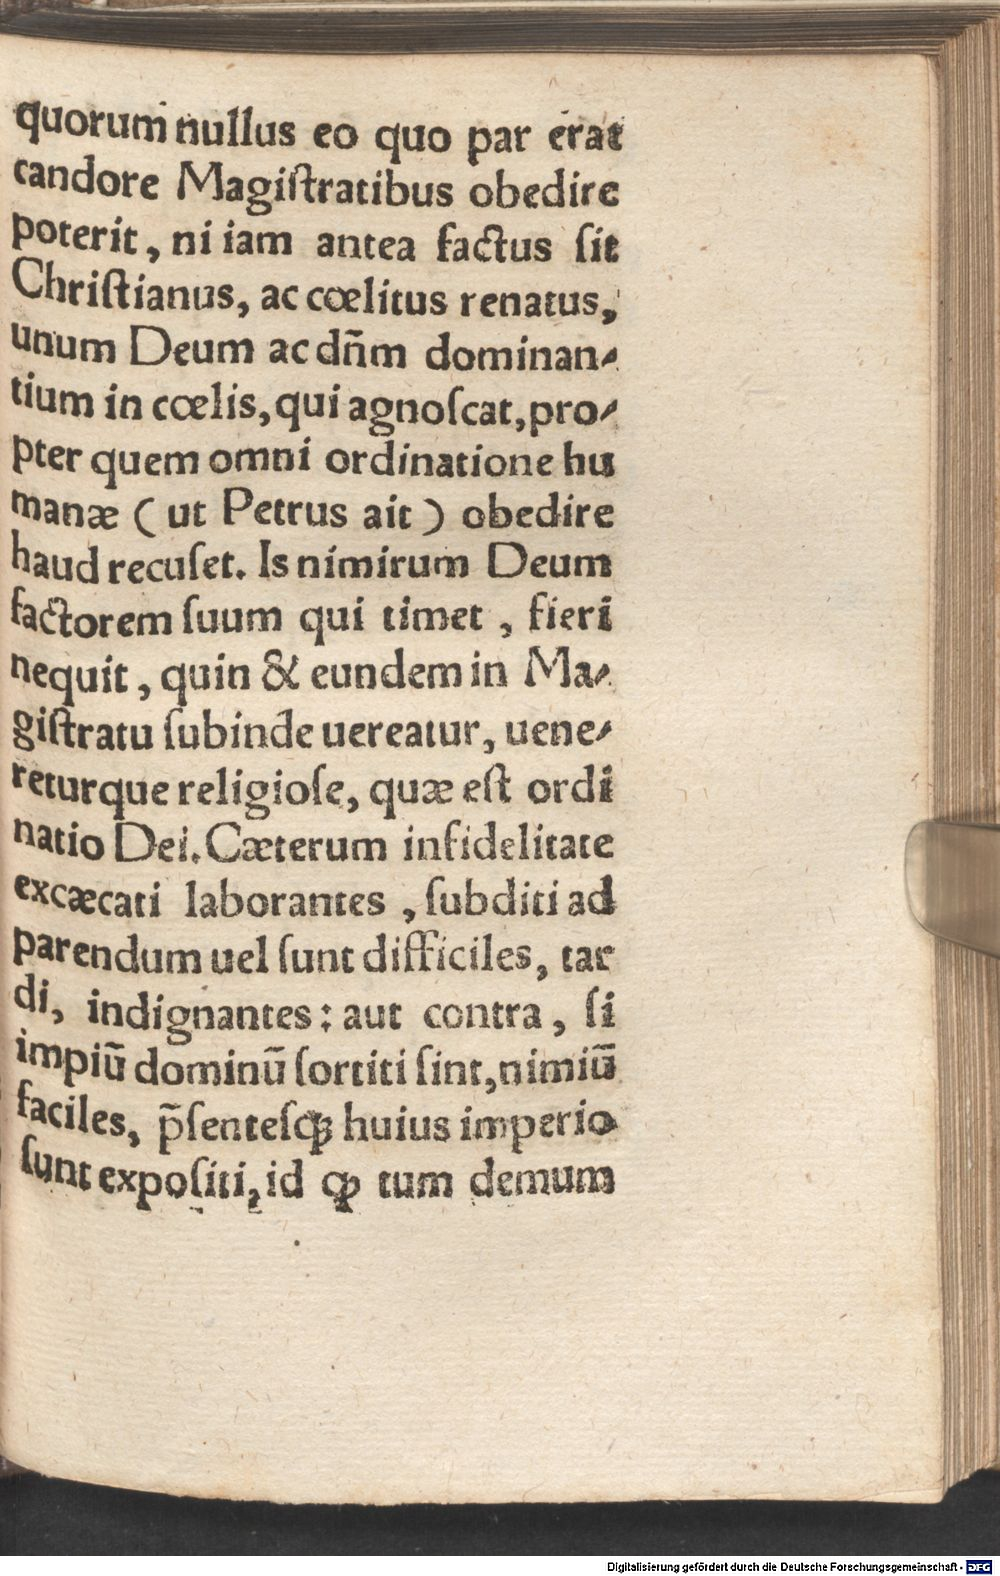 quorum nullus eo quo par erat
candore Magiſtratibus obedire
poterit, ni iam antea factus ſit
Chriſtianus, ac cœlitus renatus,
unum Deum ac dñm dominan⸗
tium in cœlis, qui agnoſcat, pro⸗
pter quem omni ordinatione hu
manæ ( ut Petrus ait ) obedire
haud recuſet. Is nimirum Deum
factorem ſuum qui timet , fieri
nequit, quin & eundem in Ma⸗
giſtratu ſubinde uereatur, uene⸗
returque religioſe, quæ est ordi
natio Dei. Cæterum infidelitate
excæcati laborantes , ſubditi ad
parendum uel ſunt difficiles, tar
di, indignantes: aut contra, ſi
impiũ dominũ ſortiti ſint, nimiũ
faciles, p̃ſenteſꝗ́ꝫ huius imperio
ſunt expoſiti, id ꝙ tum demum
Digitalisierung gefördert durch die Deutsche Forschungsgemeinschaft - DFG